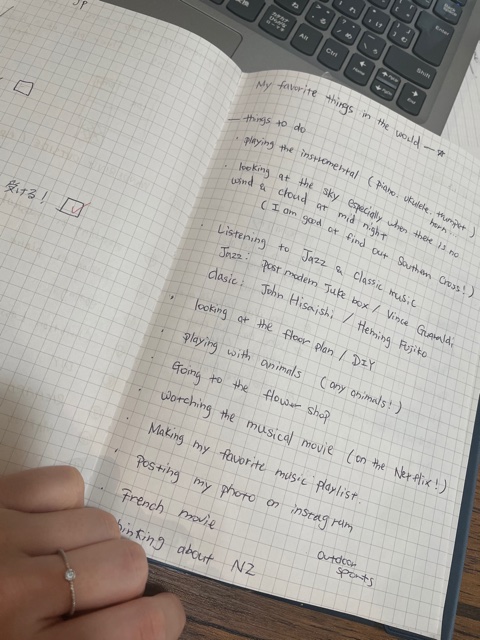 JP
受ける!
My favorite things in the world
— things to do
・playing the instrumental (piano, ukulele, trumpet)
horn
・looking at the sky especially when there is no
wind & cloud at mid night
(I am good at find out Southern Cross!)
・Listening to Jazz & classic music
Jazz: post modern Juke box / Vince Guaraldi
clasic: John Hisaishi / Heming Fujiko
・looking at the floor plan / DIY
・playing with animals (any animals!)
Going to the flower shop
・watching the musical movie (on the Netflix!)
・Making my favorite music playlist.
・posting my photo on instagram
・French movie
thinking about NZ
outdoor
sports
Alt
Ctrl
Enter
Shift
Home
End